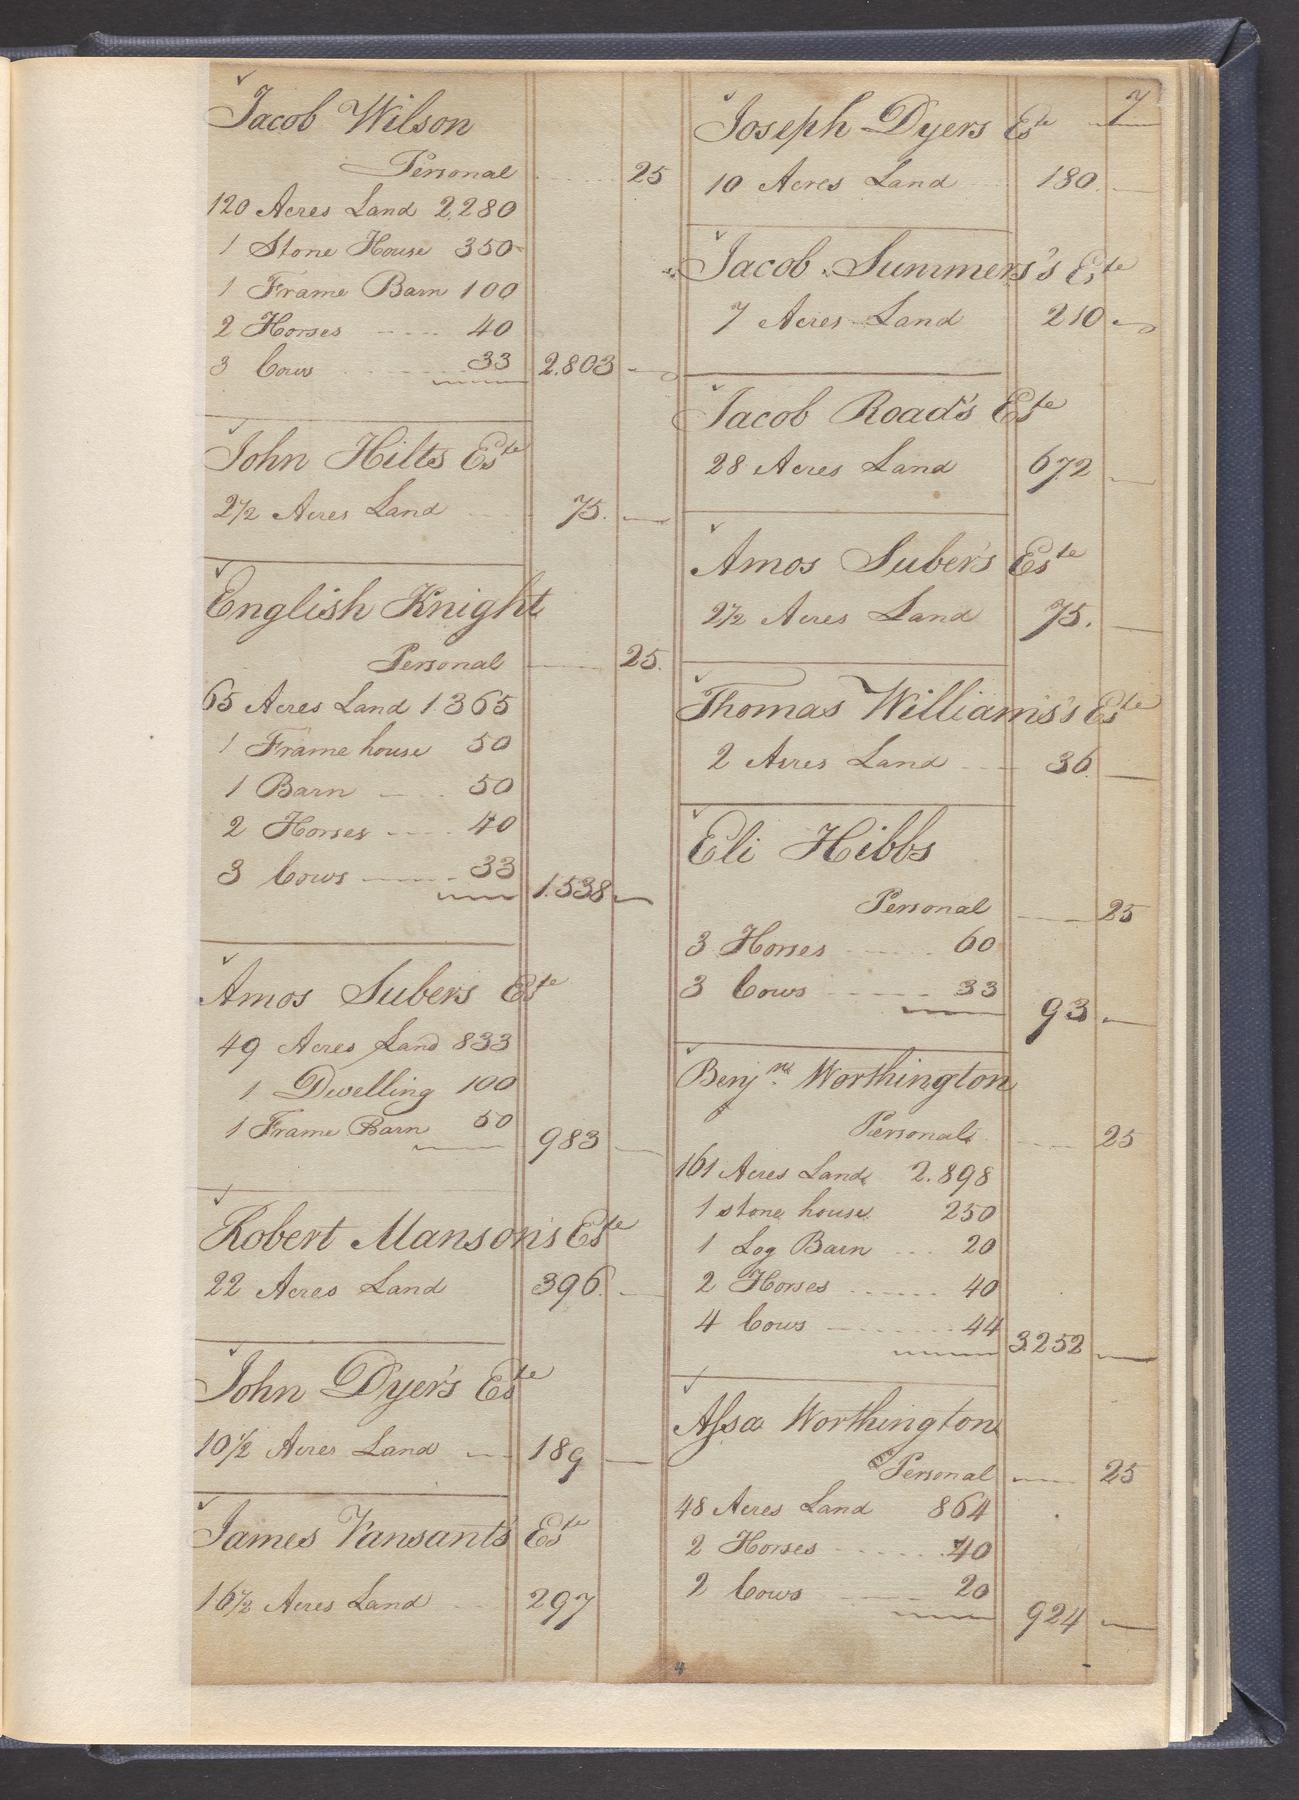 Jacob Wilson
Personal 25
120 Acres Land 2,280
1 Stone House 350
1 Frame Barn 100
2 Horses 40
3 Cows 33 2.803
John Hilts Este
2 1/2 Acres Land 75.
English Knight
Personal 25.
65 Acres Land 1365
1 Frame house 50
1 Barn 50
2 Horses 40
3 Cows 33 1.538
Amos Subers Este
49 Acres Land 833
1 Dwelling 100
1 Frame Barn 50 983
Robert Manson's Este
22 Acres Land 396.
John Dyer's Este
10 1/2 Acres Land 189
James Vansant's Este
16 1/2 Acres Land 297
7
Joseph Dyers Este
10 Acres Land 180.
Jacob Summers's Este
7 Acres Land 210
Jacob Road's Este
28 Acres Land 672
Amos Suber's Este
2 1/2 Acres Land 75.
Thomas Williams's Este
2 Acres Land 36
Eli Hibbs
Personal 25
3 Horses 60
3 Cows 33 93
Benjn. Worthington
Personal 25
161 Acres Land 2.898
1 stone house 250
1 Log Barn 20
2 Horses 40
4 Cows 44 3252
Assa Worthington
Personal 25
48 Acres Land 864
2 Horses 40
2 Cows 20
924
4